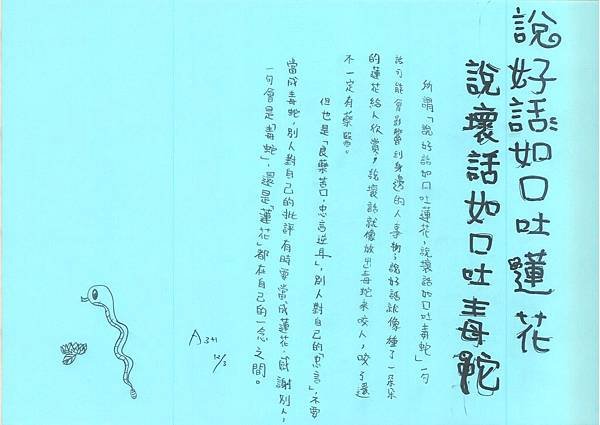 說好話如口吐蓮花
說壞話如口吐毒蛇
所謂「說好話如口吐蓮花，說壞話如口吐毒蛇」一句
話可能會影響到身邊的人事物；說好話就像種了一朵朵
的蓮花給人欣賞，說壞話就像放出毒蛇來咬人，咬了還
不一定有藥醫。
但也是「良藥苦口，忠言逆耳」，別人對自己的「忠言」，不要
當成毒蛇，別人對自己的批評有時要當成蓮花，感謝別人，
一句會是「毒蛇」，還是「蓮花」都在自己的一念之間。
A341
12/3